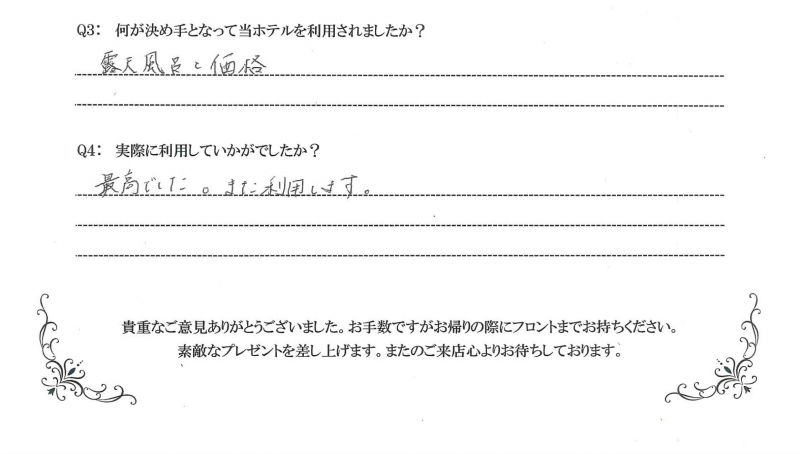 Q3: 何が決め手となって当ホテルを利用されましたか？
露天風呂と価格
Q4: 実際に利用していかがでしたか？
最高でした。また利用します。
貴重なご意見ありがとうございました。お手数ですがお帰りの際にフロントまでお持ちください。
素敵なプレゼントを差し上げます。またのご来店心よりお待ちしております。